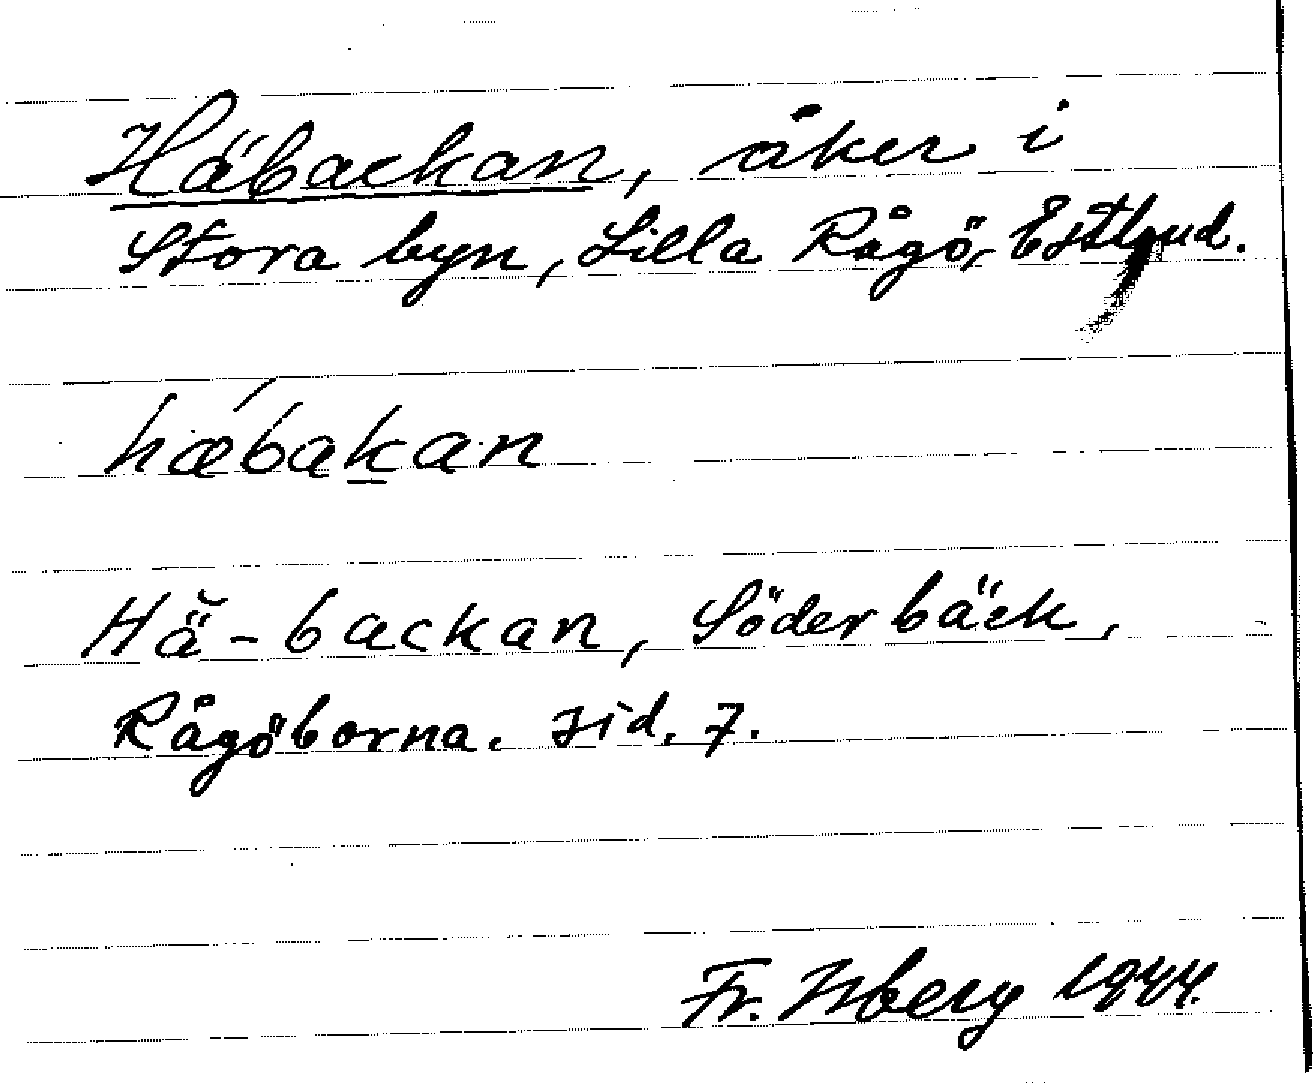 Häbackan, åker i
Stora byn, Lilla Rågö, Estland.
hǽbaḵan
Hä̆-backan, Söderbäck,
Rågöborna. sid. 7.
Fr. Isberg 1944.